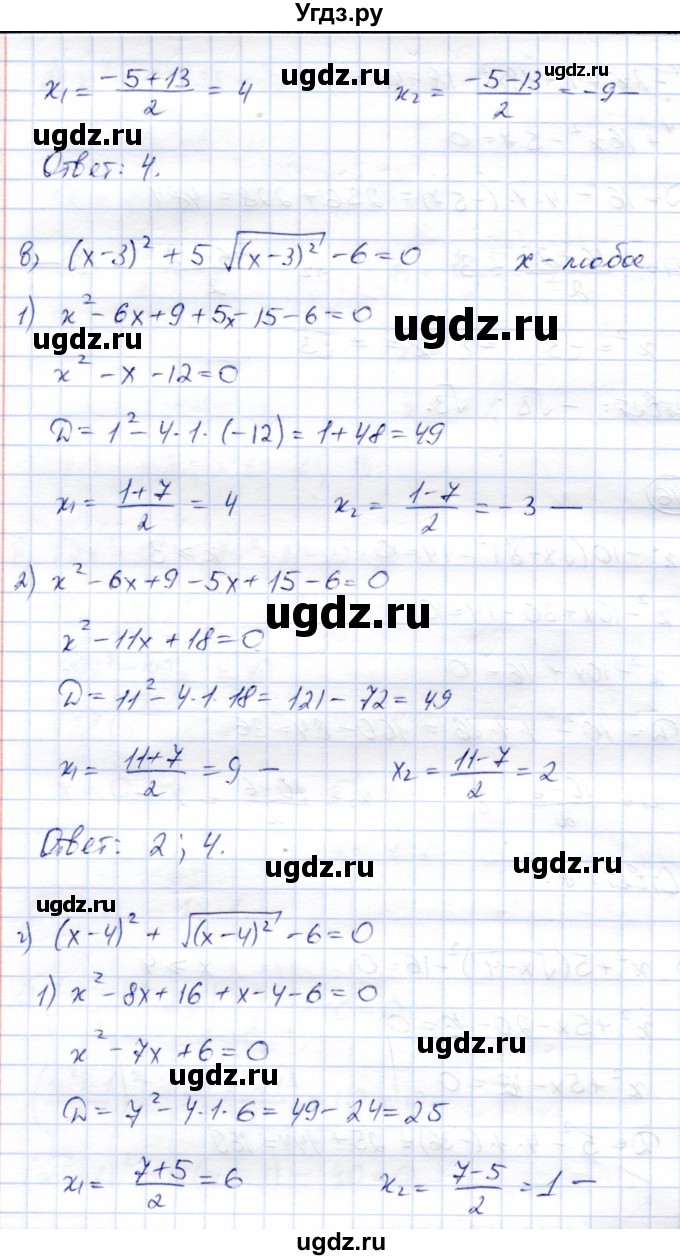 Угдз.ру
x₁ = (-5+13)/2 = 4    x₂ = (-5-13)/2 = -9 —
ugdz.ru
ugdz.ru
ugdz.ru
Ответ: 4.
в) (x-3)² + 5√(x-3)² - 6 = 0    x - любое
1) x² - 6x + 9 + 5x - 15 - 6 = 0
ugdz.ru
ugdz.ru
x² - x - 12 = 0
D = 1² - 4·1·(-12) = 1 + 48 = 49
x₁ = (1+7)/2 = 4    x₂ = (1-7)/2 = -3 —
2) x² - 6x + 9 - 5x + 15 - 6 = 0
ugdz.ru
x² - 11x + 18 = 0
D = 11² - 4·1·18 = 121 - 72 = 49
x₁ = (11+7)/2 = 9 —    x₂ = (11-7)/2 = 2
Ответ: 2; 4.
ugdz.ru
ugdz.ru
ugdz.ru
г) (x-4)² + √(x-4)² - 6 = 0
1) x² - 8x + 16 + x - 4 - 6 = 0
x² - 7x + 6 = 0
ugdz.ru
ugdz.ru
D = 7² - 4·1·6 = 49 - 24 = 25
x₁ = (7+5)/2 = 6    x₂ = (7-5)/2 = 1 —
ugdz.ru